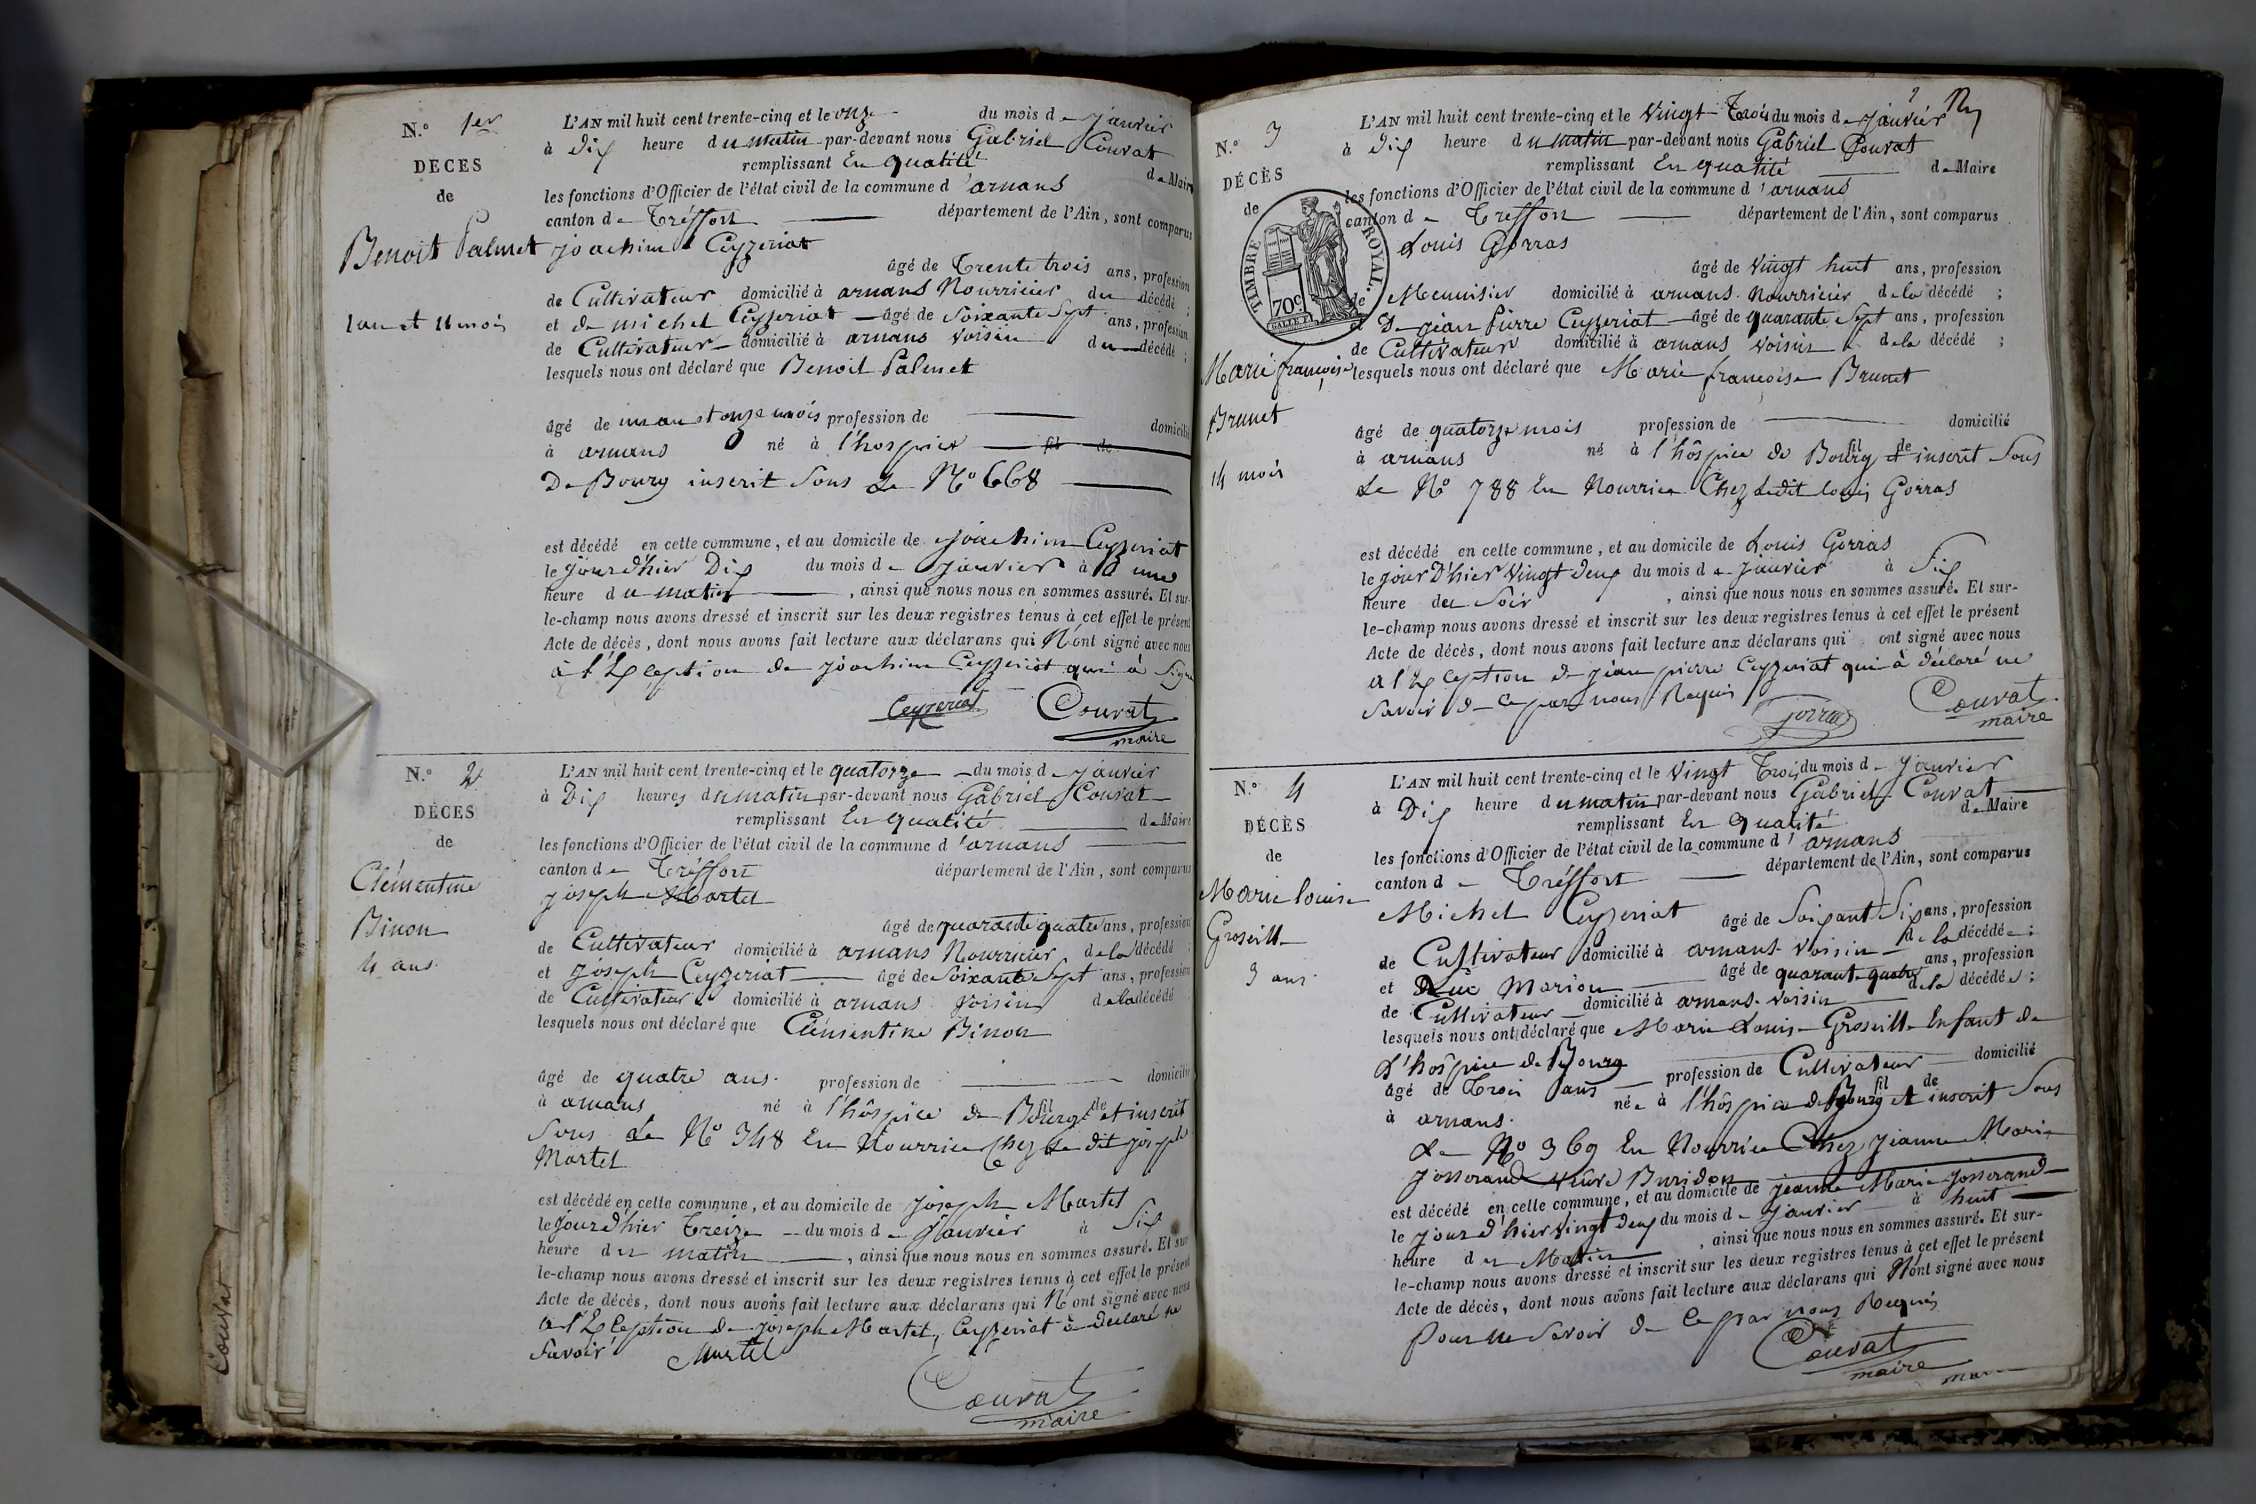 N.° 1er
DECES
de
Benoit Palmet
1 an et 11 mois
L'AN mil huit cent trente-cinq et le onze du mois de janvier
à Dix heure du matin par-devant nous Gabriel Couvat
remplissant En qualité de Maire
les fonctions d'Officier de l'état civil de la commune d'arnans
canton de Tréffort département de l'Ain, sont comparus
joachim Ceyzeriat
âgé de Trente trois ans, profession
de Cultivateur domicilié à arnans Nourricier du décédé ;
et de michel Ceyzeriat âgé de Soixante Sept ans, profession
de Cultivateur domicilié à arnans voisin du décédé ;
lesquels nous ont déclaré que Benoit Palmet
âgé de un an et onze mois profession de domicilié
à arnans né à l'hospice fil de
De Bourg inscrit Sous Le N° 668
est décédé en cette commune, et au domicile de joachim Ceyzeriat
le jour d'hier Dix du mois de janvier à une
heure du matin, ainsi que nous nous en sommes assuré. Et sur-
le-champ nous avons dressé et inscrit sur les deux registres tenus à cet effet le présent
Acte de décès, dont nous avons fait lecture aux déclarans qui N'ont signé avec nous
à l'Exception de joachim Ceyzeriat qui à Signé
Ceyzeriat Couvat
maire
N.° 2
DÉCES
de
Clémentine
Binon
4 ans
L'AN mil huit cent trente-cinq et le quatorze du mois de janvier
à Dix heures du matin par-devant nous Gabriel Couvat
remplissant En qualité de Maire
les fonctions d'Officier de l'état civil de la commune d'arnans
canton de Tréffort département de l'Ain, sont comparus
joseph Martel
âgé de quarante quatre ans, profession
de Cultivateur domicilié à arnans Nourricier de la décédé ;
et joseph Ceyzeriat âgé de Soixante Sept ans, profession
de Cultivateur domicilié à arnans voisin de la décédé
lesquels nous ont déclaré que Clémentine Binon
âgé de quatre ans. profession de domicilié
à arnans né à l'hôspice de Bourg fil de et inscrit
Sous Le N° 348 En Nourrice Chez Le dit joseph
Martel
est décédé en cette commune, et au domicile de joseph Martel
le jour d'hier Treize du mois de janvier à Six
heure du matin, ainsi que nous nous en sommes assuré. Et sur-
le-champ nous avons dressé et inscrit sur les deux registres tenus à cet effet le présent
Acte de décès, dont nous avons fait lecture aux déclarans qui N'ont signé avec nous
à l'Exception de joseph Martel, Ceyzeriat à déclaré ne
Savoir Martel
Couvat
maire
Couvat
N.° 3
DÉCÈS
de
TIMBRE ROYAL.
70c
Marie françoise
Brunet
14 mois
L'AN mil huit cent trente-cinq et le vingt Trois du mois de janvier
à Dix heure du matin par-devant nous Gabriel Couvat
remplissant En qualité de Maire
les fonctions d'Officier de l'état civil de la commune d'arnans
canton de Treffort département de l'Ain, sont comparus
Louis Gorras
âgé de vingt huit ans, profession
de Menuisier domicilié à arnans Nourricier de la décédé ;
et De jean Pierre Ceyzeriat âgé de quarante Sept ans, profession
de Cultivateur domicilié à arnans voisin de la décédé ;
lesquels nous ont déclaré que Marie françoise Brunet
âgé de quatorze mois profession de domicilié
à arnans né à l'hôspice de Bourg fil de et inscrit Sous
Le N° 788 En Nourrice Chez Ledit Louis Gorras
est décédé en cette commune, et au domicile de Louis Gorras
le jour D'hier vingt deux du mois de janvier à Six
heure du Soir, ainsi que nous nous en sommes assuré. Et sur-
le-champ nous avons dressé et inscrit sur les deux registres tenus à cet effet le présent
Acte de décès, dont nous avons fait lecture aux déclarans qui ont signé avec nous
à l'Exception de jean pierre Ceyzeriat qui à déclaré ne
Savoir de ce par nous Requis
Gorras Couvat
maire
N.° 4
DÉCÈS
de
Marie louise
Groseille
3 ans
L'AN mil huit cent trente-cinq et le vingt Trois du mois de janvier
à Dix heure du matin par-devant nous Gabriel Couvat
remplissant En qualité de Maire
les fonctions d'Officier de l'état civil de la commune d'arnans
canton de Tréffort département de l'Ain, sont comparus
Michel Ceyzeriat âgé de Soixant Six ans, profession
de Cultivateur domicilié à arnans voisin de la décédée ;
et Luc Marion âgé de quarante quatre ans, profession
de Cultivateur domicilié à arnans voisin de la décédée ;
lesquels nous ont déclaré que Marie Louise Groseille Enfant de
L'hôspice de Bourg
âgé de Trois ans profession de Cultivateur domicilié
à arnans. née à l'hôspice de Bourg fil de et inscrit Sous
Le N° 369 En Nourrice Chez jeanne Marie
josserand veuve Buridon
est décédé en cette commune, et au domicile de jeanne Marie josserand
le jour d'hier vingt deux du mois de janvier à huit
heure du Matin, ainsi que nous nous en sommes assuré. Et sur-
le-champ nous avons dressé et inscrit sur les deux registres tenus à cet effet le présent
Acte de décès, dont nous avons fait lecture aux déclarans qui N'ont signé avec nous
pour ne Savoir de ce par nous Requis
Couvat
maire